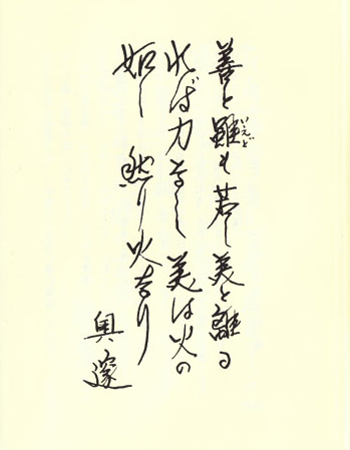 善と雖も若し美と離る
いえど
れば力なし美は火の
如し 然り火なり
奥邃